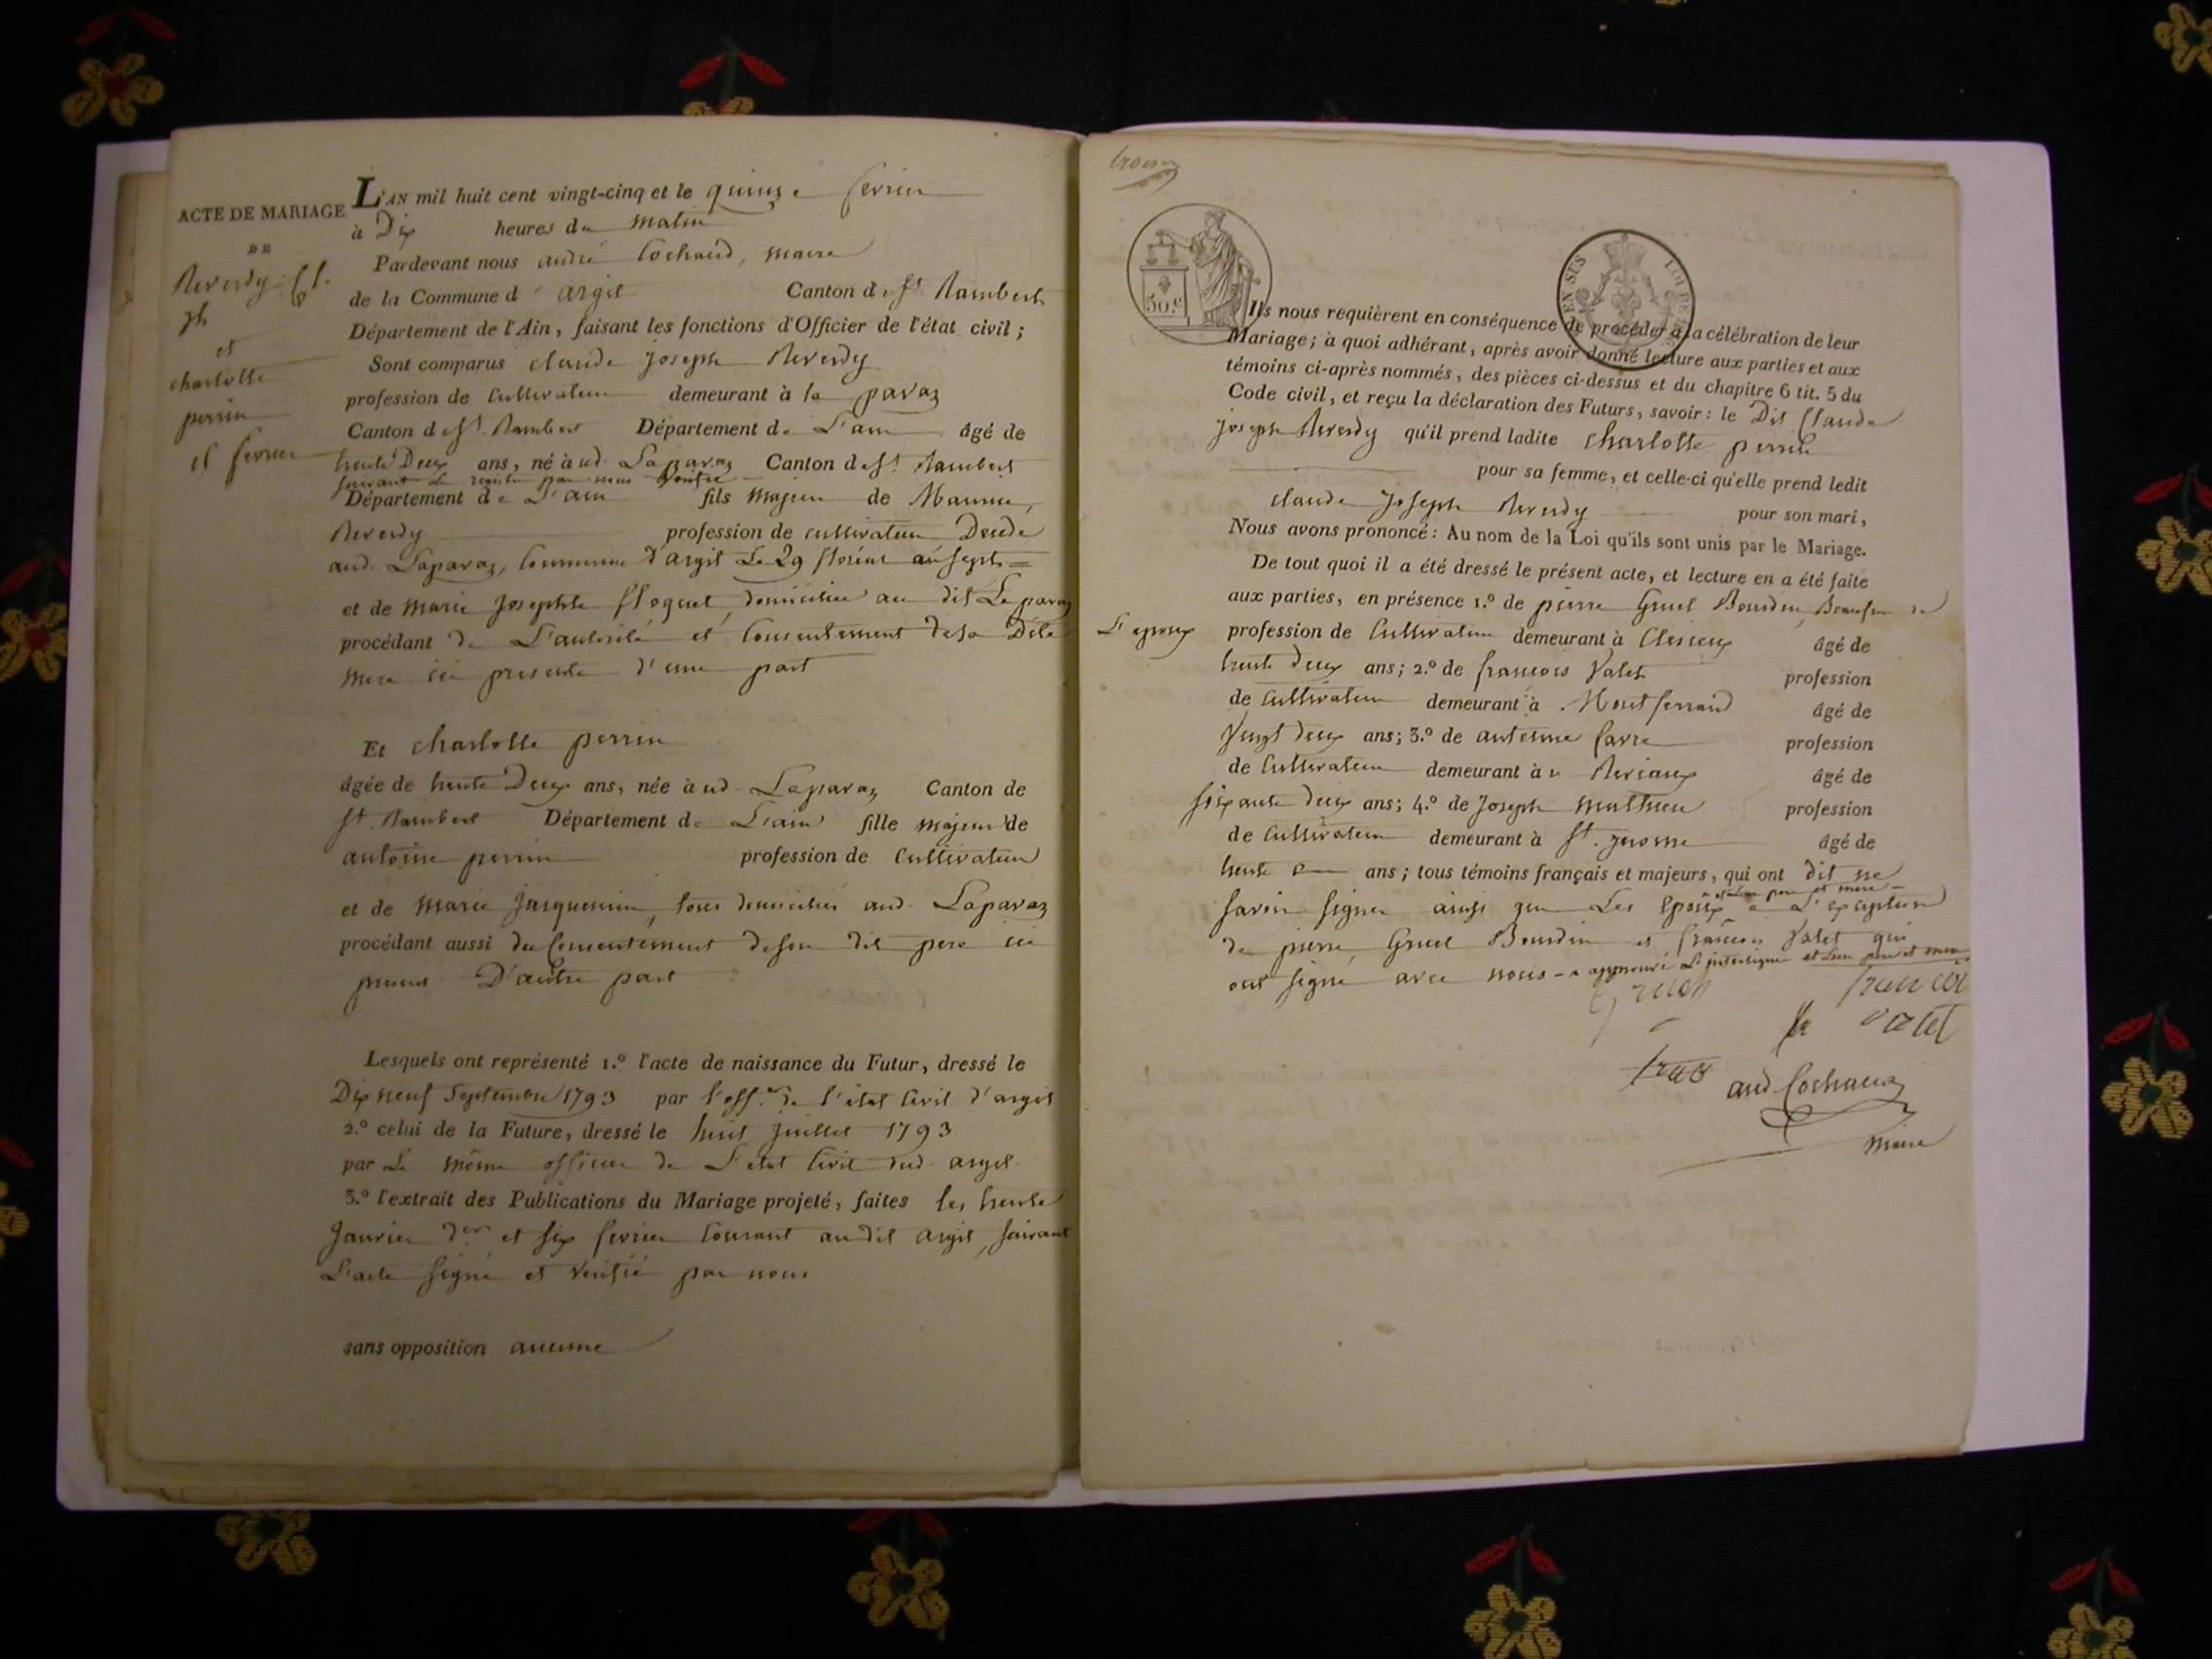 ACTE DE MARIAGE
DE
Reverdy Cl.
Jh
et
charlotte
perrin
15 fevrier
L'AN mil huit cent vingt-cinq et le quinze fevrier
à Dix heures du matin
Pardevant nous andré Cochaud, maire
de la Commune d'argis Canton de St Rambert
Département de l'Ain, faisant les fonctions d'Officier de l'état civil;
Sont comparus claude joseph Reverdy
profession de Cultivateur demeurant à la paraz
Canton de St. Rambert Département de L'ain âgé de
trente Deux ans, né à ud. Laparaz Canton de St. Rambert
suivant le registre par nous vérifié
Département de L'ain fils majeur de
Reverdy profession de cultivateur Décédé
aud. Laparaz, Commune d'argis Le 29 floréal an sept
et de marie Josephte floquet domiciliée au dit Laparaz
procédant de L'autorité et Consentement de sa Dite
mere ici presente d'une part
Et charlotte perrin
âgée de trente Deux ans, née à ud. Laparaz Canton de
St. Rambert Département de L'ain fille majeure de
antoine perrin profession de Cultivateur
et de marie Jacquemin, tous domiciliés aud. Laparaz
procédant aussi du Consentement de son dit pere ici
present D'autre part
Lesquels ont représenté 1.º l'acte de naissance du Futur, dressé le
Dix neuf Septembre 1793 par l'off.er de l'état Civil d'argis
2.º celui de la Future, dressé le huit Juillet 1793
par Le même officier de L'état Civil dud. argis
3.º l'extrait des Publications du Mariage projeté, faites les trente
Janvier der et six fevrier Courant audit argis, suivant
L'acte signé et verifié par nous
sans opposition aucune
50 c.
Ils nous requièrent en conséquence de procéder à la célébration de leur
Mariage; à quoi adhérant, après avoir donné lecture aux parties et aux
témoins ci-après nommés, des pièces ci-dessus et du chapitre 6 tit. 5 du
Code civil, et reçu la déclaration des Futurs, savoir: le Dit Claude
joseph Reverdy qu'il prend ladite charlotte perrin
pour sa femme, et celle-ci qu'elle prend ledit
claude Joseph Reverdy pour son mari,
Nous avons prononcé: Au nom de la Loi qu'ils sont unis par le Mariage.
De tout quoi il a été dressé le présent acte, et lecture en a été faite
aux parties, en présence 1.º de pierre Gruel Bourdin, Beaufrere de
L'epoux profession de Cultivateur demeurant à âgé de
trente deux ans; 2.º de françois Valet profession
de Cultivateur demeurant à Montferrand âgé de
Vingt deux ans; 3.º de antoine favre profession
de Cultivateur demeurant à âgé de
soixante deux ans; 4.º de Joseph mathieu profession
de Cultivateur demeurant à St. jerome âgé de
trente ans; tous témoins français et majeurs, qui ont dit ne
et leur pere et mere
savoir signer ainsi que Les Epoux a L'exception
de pierre Gruel Bourdin et françois Valet qui
ont signé avec nous - approuvé L'interligne et leur pere et mere
francoi
valet
and. Cochaud
maire